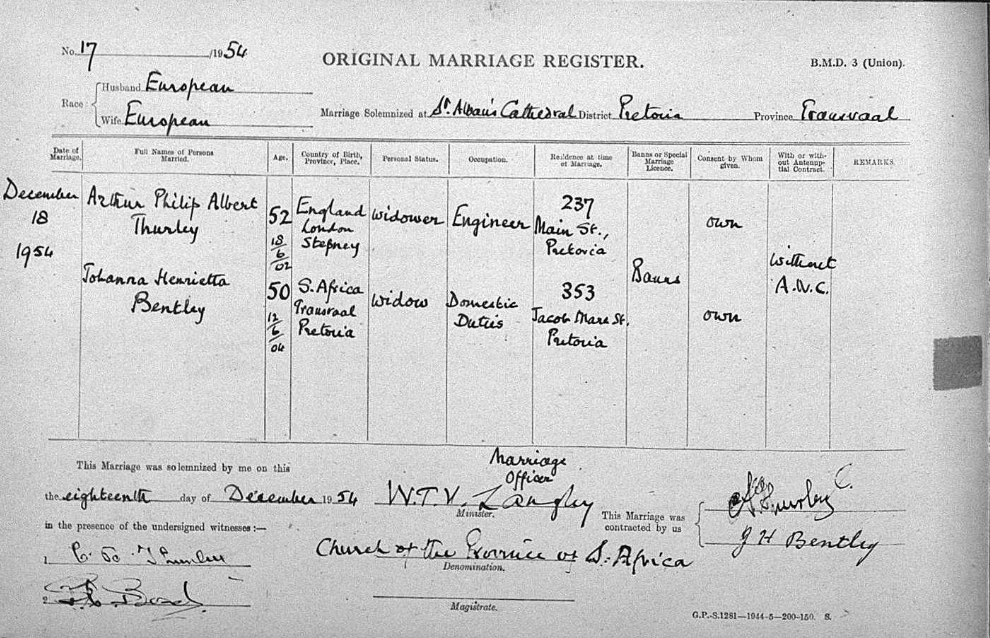 No. 17 /1954
ORIGINAL MARRIAGE REGISTER.
B.M.D. 3 (Union).
Race Husband European
Wife European
Marriage Solemnized at St Alban's Cathedral District Pretoria Province Transvaal
Date of Marriage.
Full Names of Persons Married.
Age.
Country of Birth, Province, Place.
Personal Status.
Occupation.
Residence at time of Marriage.
Banns or Special Marriage Licence.
Consent by Whom given.
With or without Antenuptial Contract.
REMARKS.
December 18 1954
Arthur Philip Albert Thurley
52 18/6/02
England London Stepney
widower
Engineer
237 Main St., Pretoria
own
Johanna Henrietta Bentley
50 12/6/04
S. Africa Transvaal Pretoria
widow
Domestic Duties
353 Jacob Mare St. Pretoria
Banns
own
without A.N.C.
This Marriage was solemnized by me on this
the eighteenth day of December 1954
in the presence of the undersigned witnesses:—
1.
2.
Marriage Officer
W.T.V. Langley
Minister.
Church of the Province of S. Africa
Denomination.
Magistrate.
This Marriage was contracted by us
J H Bentley
G.P.-S.1281—1944-5—200-150. S.